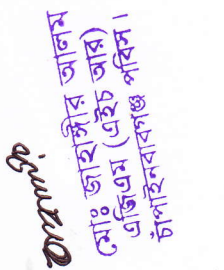 মোঃ জাহাঙ্গীর আলম
এজিএম (এইচ আর)
চাঁপাইনবাবগঞ্জ পবিস।